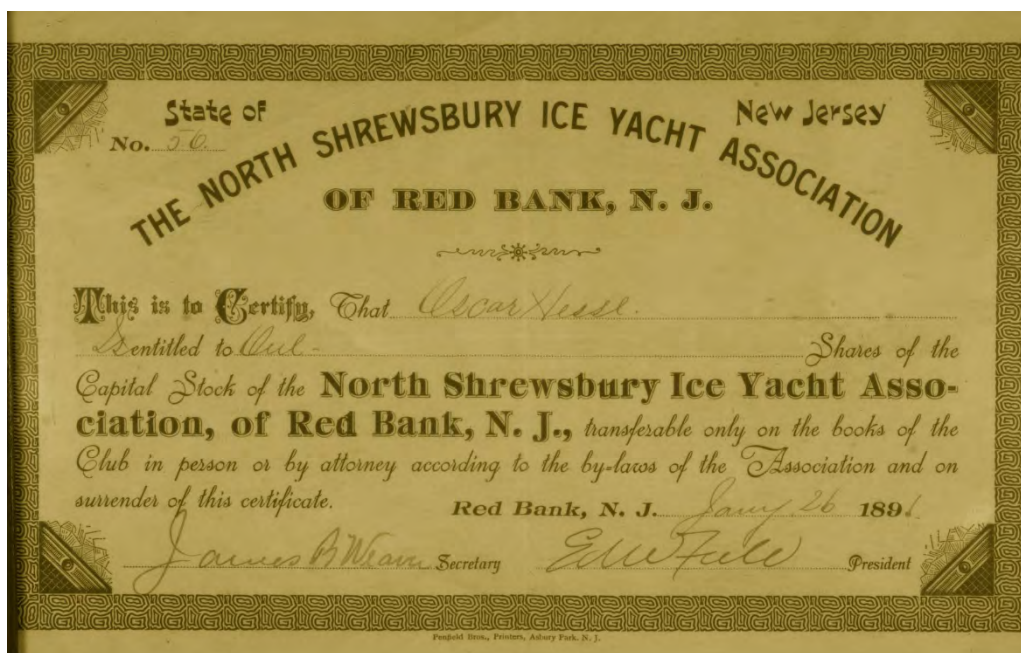 State of New Jersey
No. 56.
THE NORTH SHREWSBURY ICE YACHT ASSOCIATION
OF RED BANK, N. J.
This is to Certify, That Oscar Hesse.
Is entitled to One Shares of the
Capital Stock of the North Shrewsbury Ice Yacht Asso-
ciation, of Red Bank, N. J., transferable only on the books of the
Club in person or by attorney according to the by-laws of the Association and on
surrender of this certificate. Red Bank, N. J. Jany 26 1891
James B Weaver Secretary President
Penfield Bros., Printers, Asbury Park, N. J.